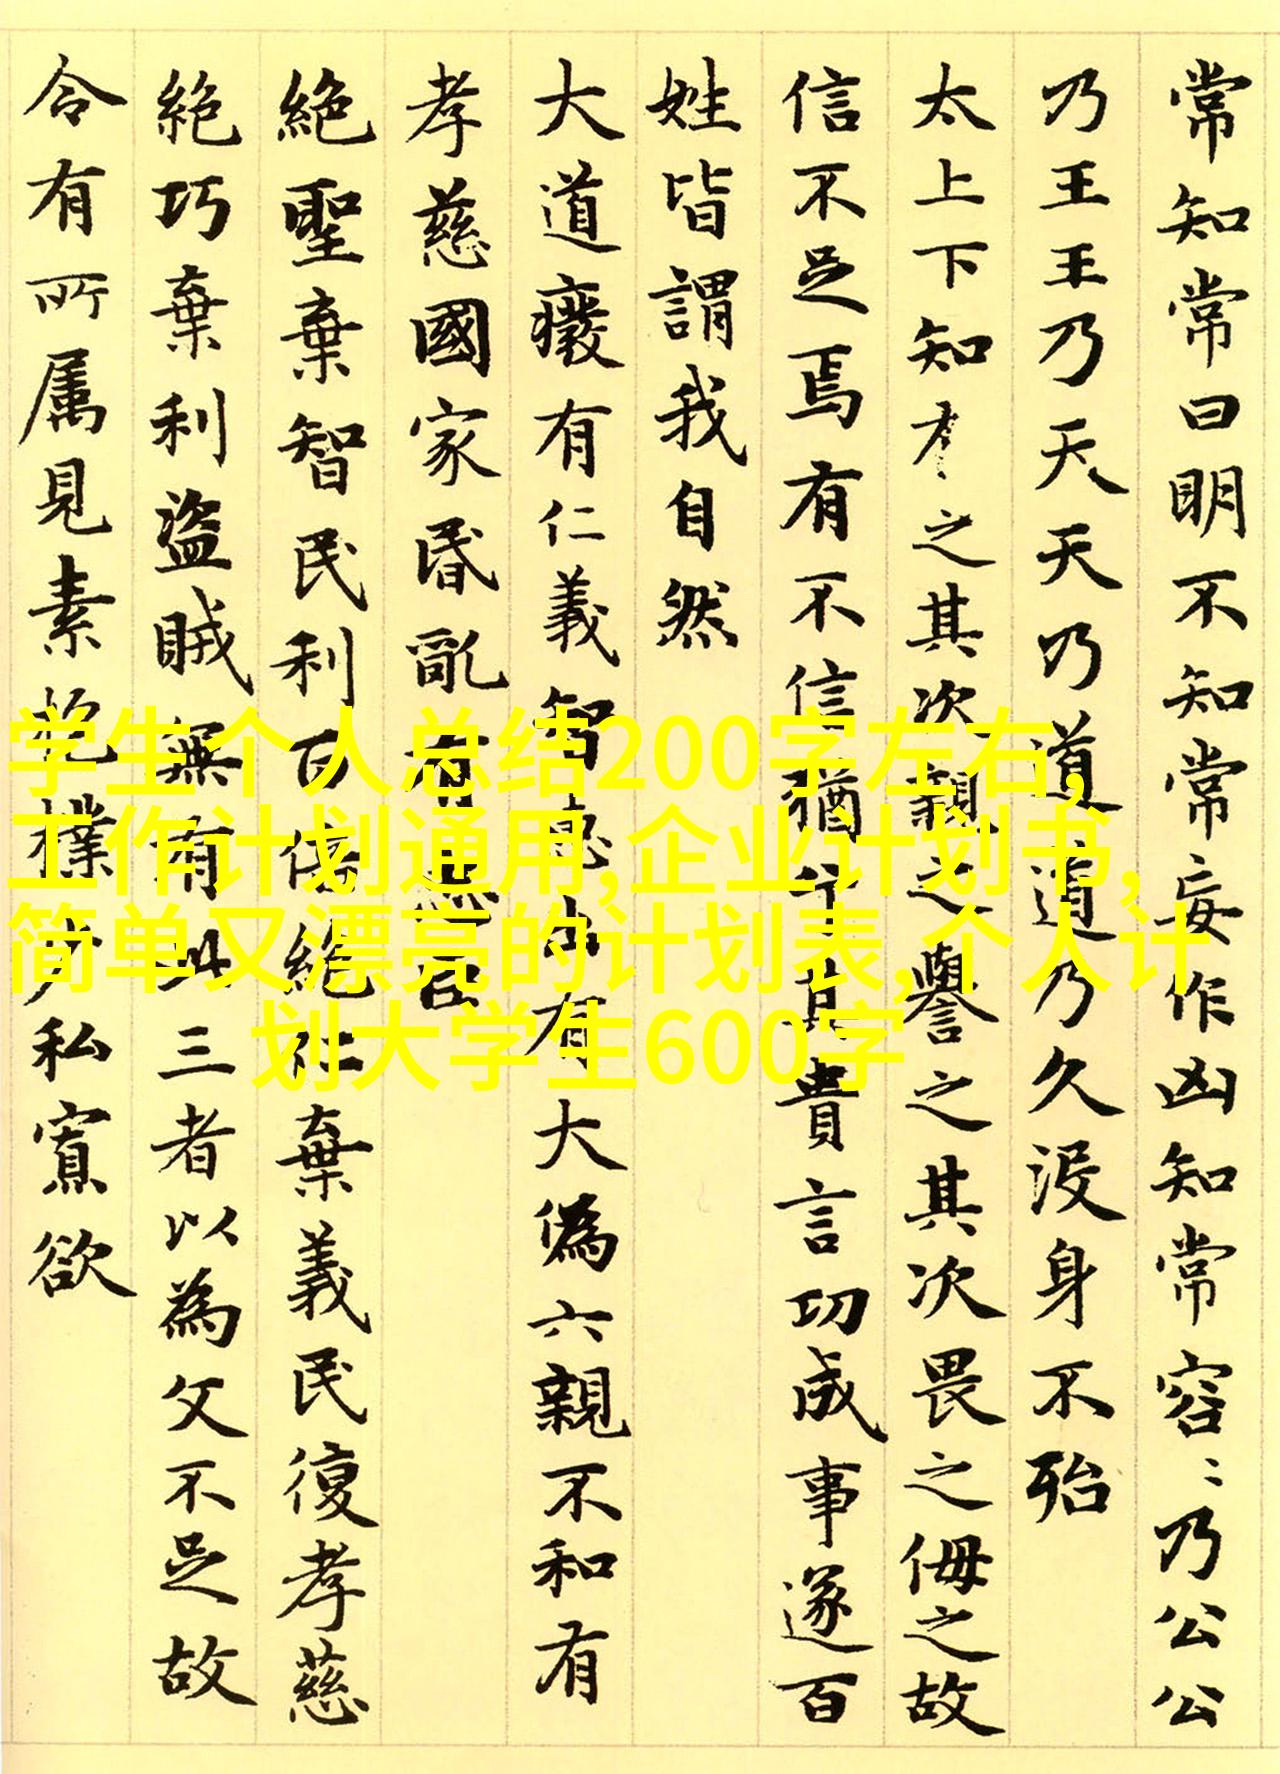 常知常曰明不知知常妄作凶知常容〻乃公公
乃王王乃天天乃道道乃久没身不殆
太上下知有之其次親之譽之其次畏之侮之故
信不足焉有不信猶兮其貴言功成事遂百
姓皆謂我自然
大道癈有仁義智惠出有大偽六親不和有
孝慈國家昏亂有忠臣
絕聖棄智民利百倍絕仁棄義民復孝慈
絕巧棄利盜賊無有此三者以為文不足故
令有所属見素抱樸少私寡欲
学生个人总结200字左右,
工作计划通用,企业计划书,
简单又漂亮的计划表,个人计
划大学生600字